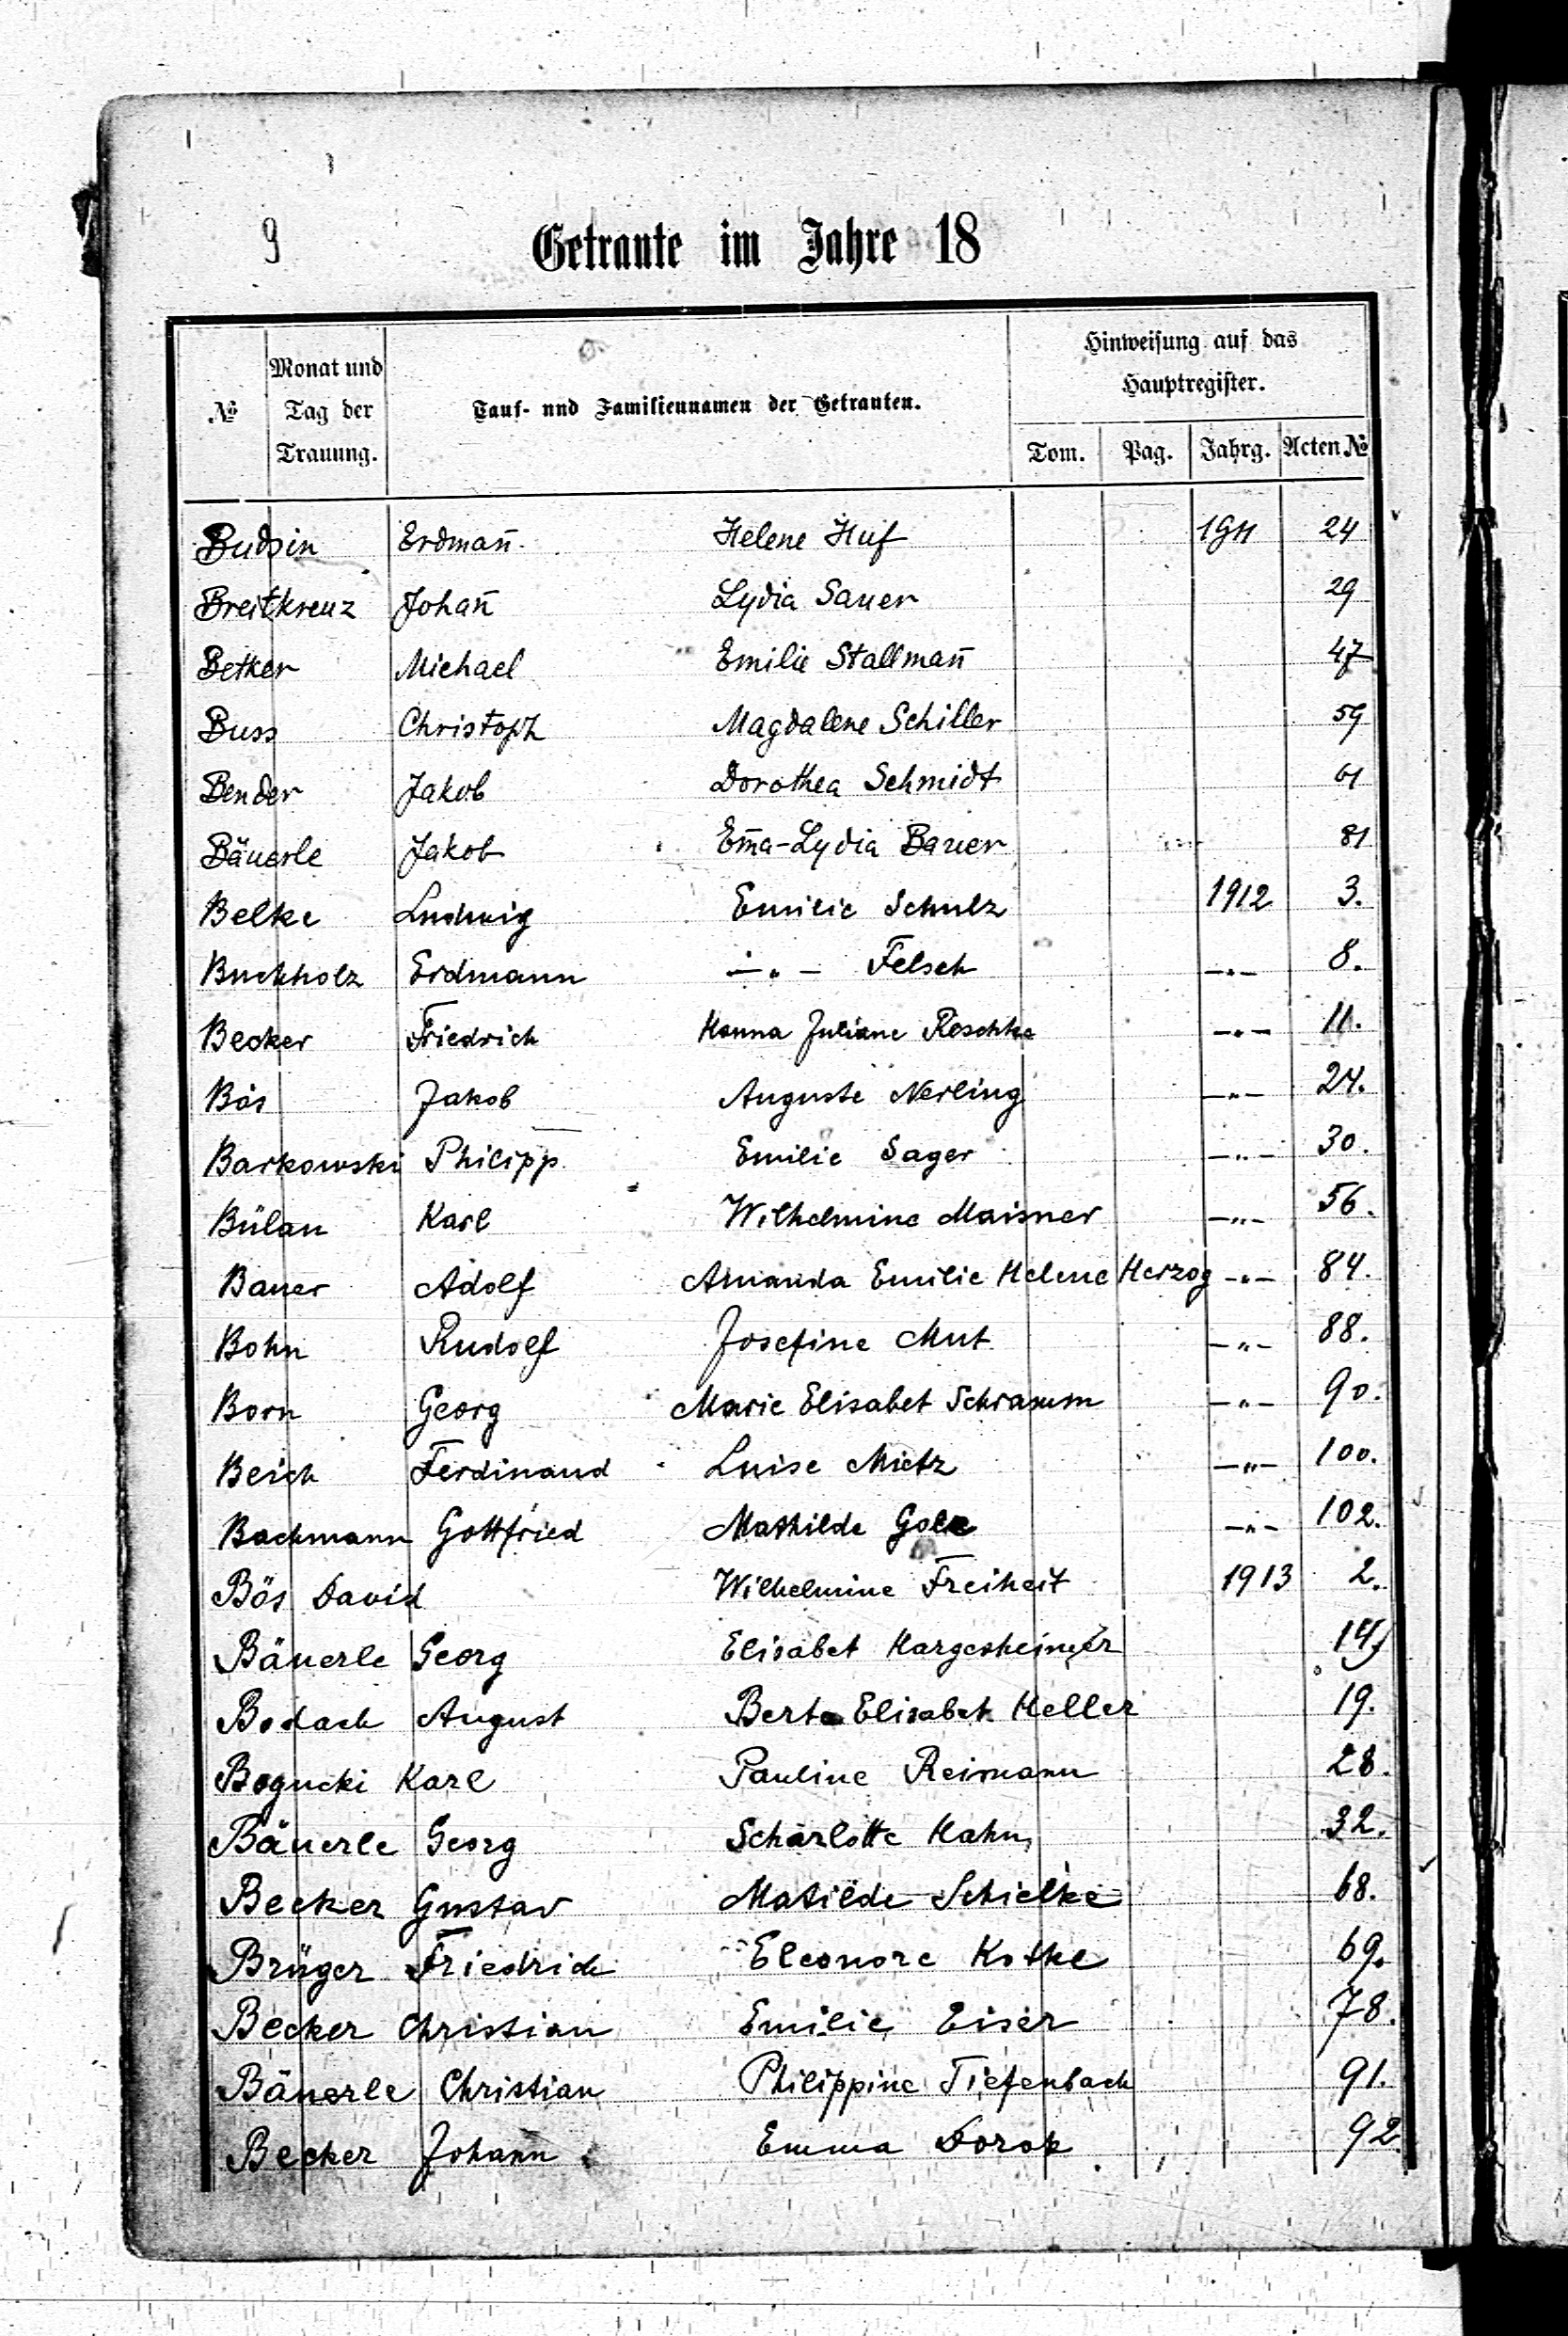 9
Getraute im Jahre 18
№ Monat und Tag der Trauung. Tauf- und Familiennamen der Getrauten. Hinweisung auf das Hauptregister.
Tom. Pag. Jahrg. Acten №
Budsin Erdman̄ Helene Huf 1911 24
Breitkreuz Johan̄ Lydia Sauer 29
Betker Michael Emilie Stallman̄ 47
Buss Christoph Magdalene Schiller 59
Bender Jakob Dorothea Schmidt 61
Bäuerle Jakob Em̄a-Lydia Bauer 81
Belke Ludwig Emilie Schulz 1912 3.
Buchholz Erdmann —„— Felsch —„— 8.
Becker Friedrich Hanna Juliane Roschke —„— 11.
Bös Jakob Auguste Nerling —„— 24.
Barkowski Philipp Emilie Sager —„— 30.
Bülau Karl Wilhelmine Maisner —„— 56.
Bauer Adolf Amanda Emilie Helene Herzog —„— 84.
Bohn Rudolf Josefine Mut —„— 88.
Born Georg Marie Elisabet Schramm —„— 90.
Beich Ferdinand Luise Mietz —„— 100.
Bachmann Gottfried Mathilde —„— 102.
Bös David Wilhelmine Freiheit 1913 2.
Bäuerle Georg Elisabet Hargesheimer 14
Bodach August Berta Elisabet Heller 19.
Bogucki Karl Pauline Reimann 28.
Bäuerle Georg Scharlotte Hahn 32.
Becker Gustav Matilde Schielke 68.
Brüger Friedrich Eleonore Kotke 69.
Becker Christian Emilie Eiser 78.
Bäuerle Christian Philippine Tiefenbach 91.
Becker Johann Emma Dorok 92.